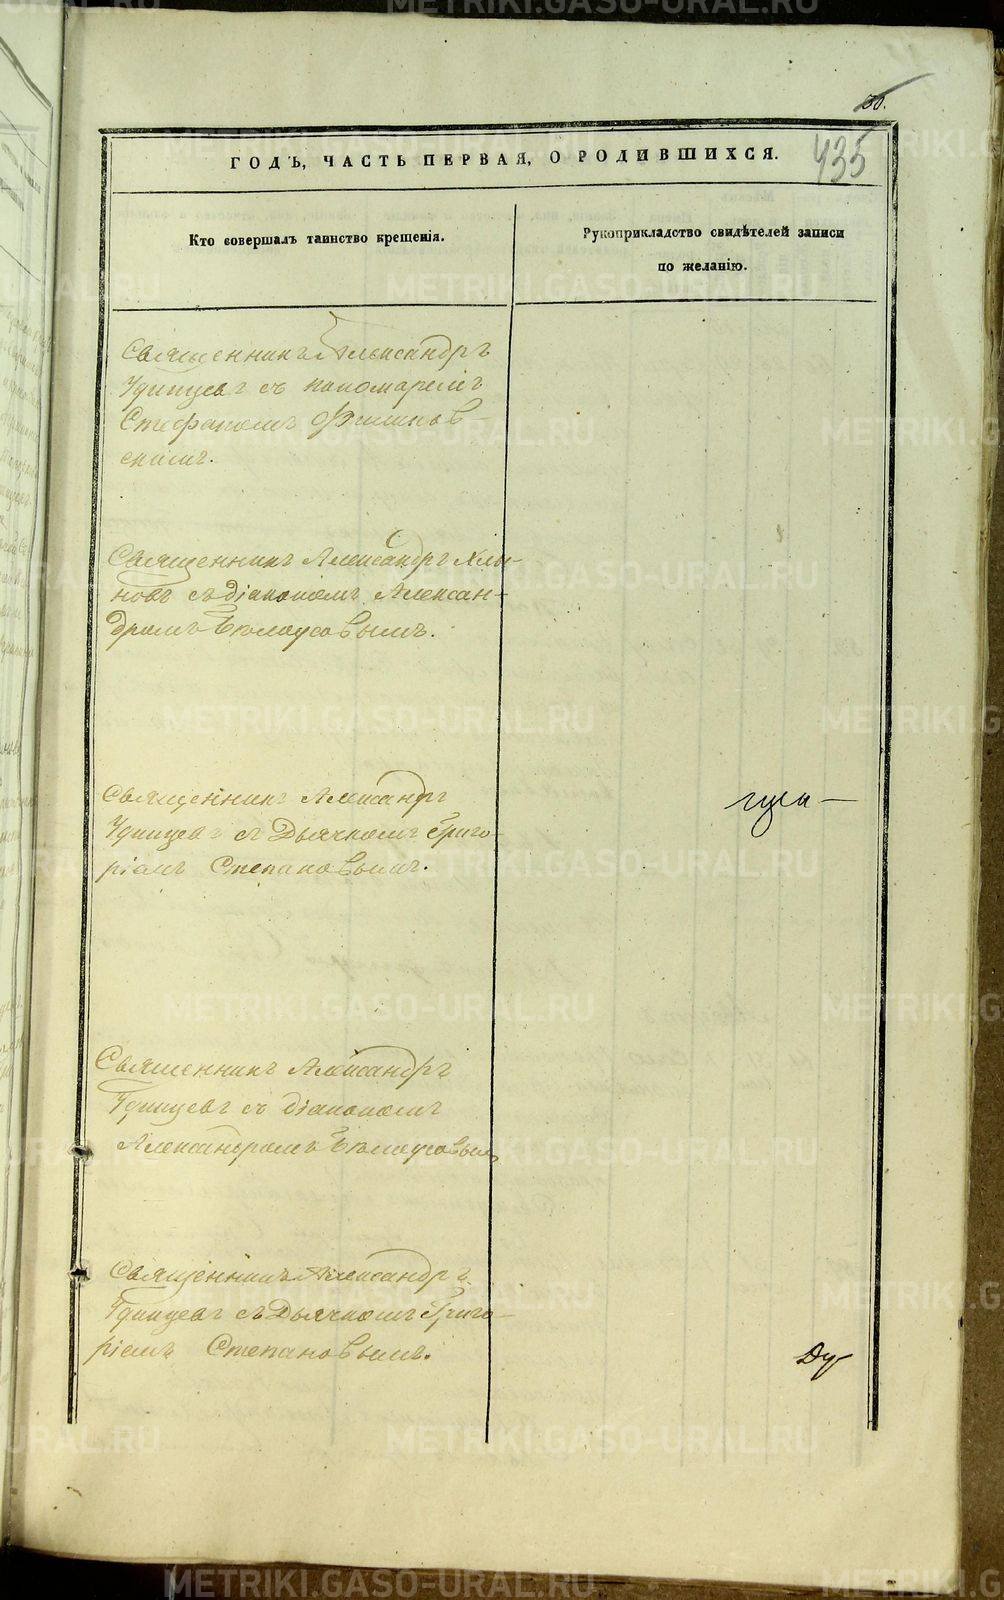 30.
435
ГОДЪ, ЧАСТЬ ПЕРВАЯ, О РОДИВШИХСЯ.
Кто совершалъ таинство крещенія.
Рукоприкладство свидѣтелей записи
по желанію.
Священникъ Александръ
Удинцевъ съ пономаремъ
Стефаномъ Филинов-
скимъ.
Священникъ Александръ Хлы-
новъ съ діакономъ Алексан-
дромъ Бѣлоусовымъ.
Священникъ Александръ
Удинцевъ съ Дьячкомъ Григо-
ріемъ Степановымъ.
Священникъ Александръ
Удинцевъ съ діакономъ
Александромъ Бѣлоусовымъ
Священникъ Александръ
Удинцевъ съ Дьячкомъ Григо-
ріемъ Степановымъ.
METRIKI.GASO-URAL.RU